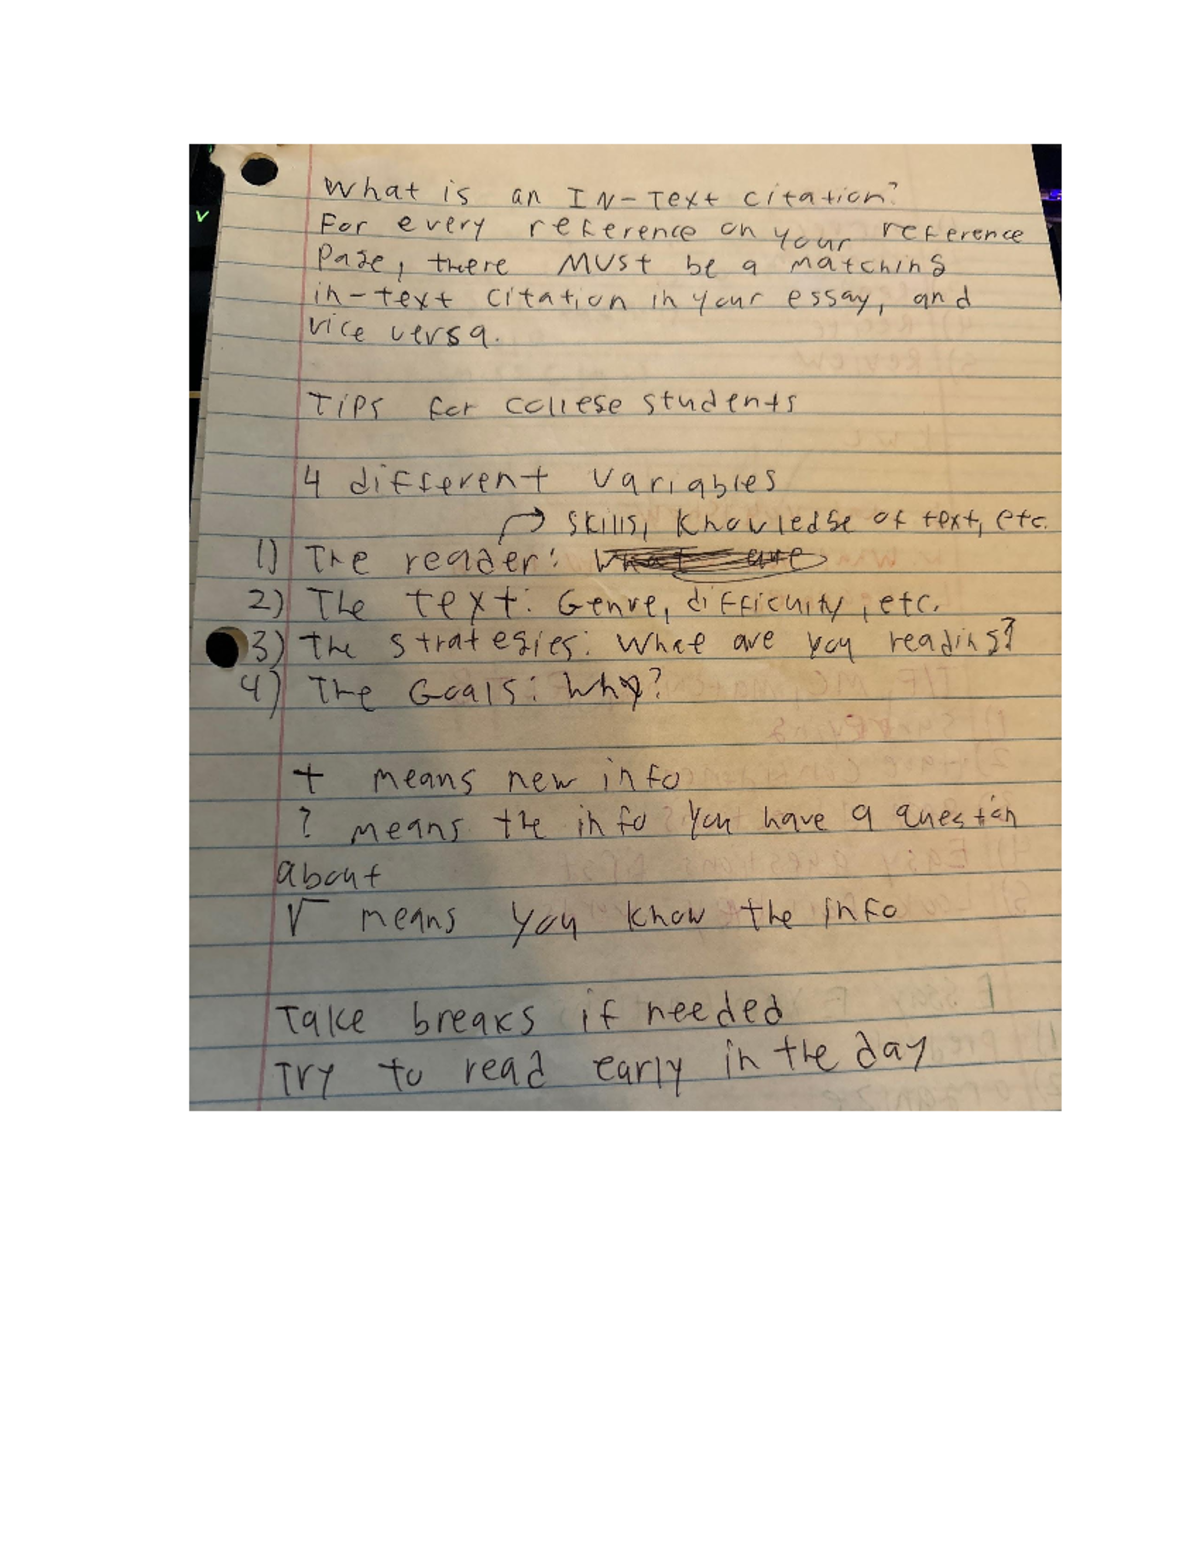 What is an IN-Text citation?
For every reference on your reference
Page, there MUST be a matching
in-text citation in your essay, and
vice versa.
Tips for college students
4 different variables
→ skills, knowledge of text, etc.
1) The reader:
2) The text: Genre, difficulty, etc.
3) The strategies: What are you reading?
4) The Goals: Why?
+ means new info
? means the info you have a question
about
√ means you know the info
Take breaks if needed
Try to read early in the day